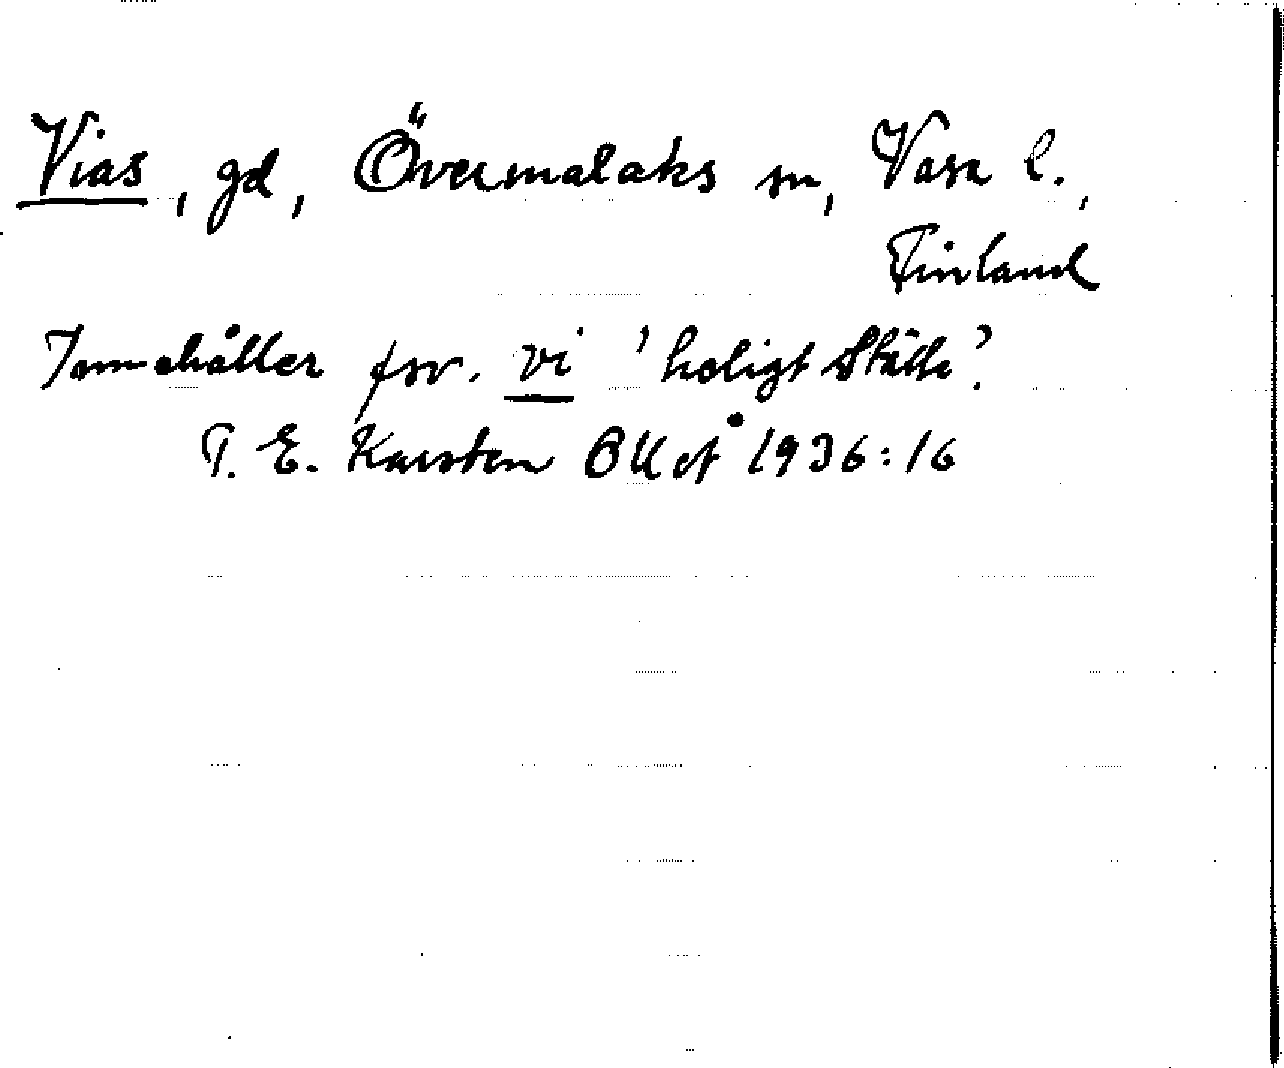 Vias, gd, Övermalaks sn, Vasa l.,
Finland
Innehåller fsv. vi 'heligt ställe'?
T. E. Karsten 1936:16